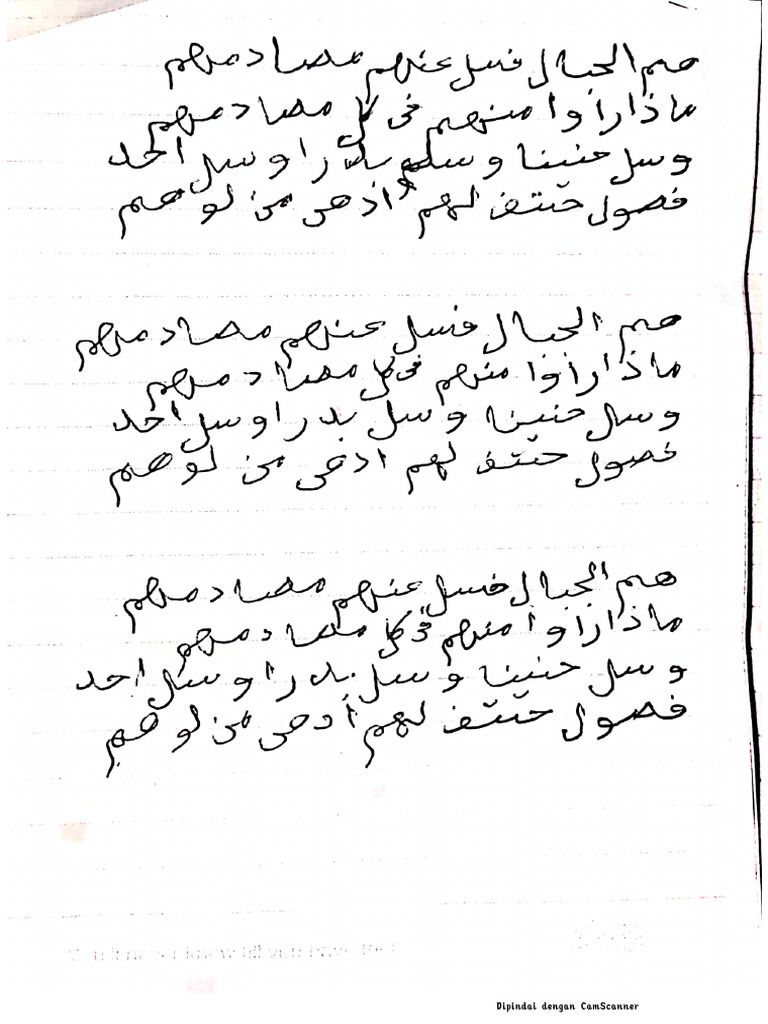 هم الجبال فسل عنهم مصادمهم
ماذا راوا منهم فى كل مصادمهم
وسل حنينا وسلم بدرا وسل احد
فصول حتف لهم وادهى من لوهم
هم الجبال فسل عنهم مصادمهم
ماذا راوا منهم فى كل مصادمهم
وسل حنينا وسل بدرا وسل احد
فصول حتف لهم ادهى من لوهم
هم الجبال فسل عنهم مصادمهم
ماذا راوا منهم فى كل مصادمهم
وسل حنينا وسل بدرا وسل احد
فصول حتف لهم أدهى من لوهم
Dipindai dengan CamScanner